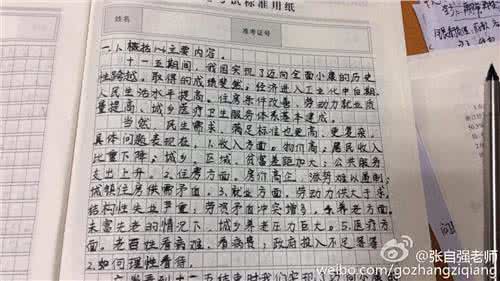 试标准用纸
姓名
准考证号
一、1.概括主要内容。
十一五期间，我国实现了迈向全面小康的历史
性跨越，取得的成绩斐然。经济进入工业化中后期，
人民生活水平提高，住房条件改善，劳动力就业质
量提高，城乡医疗卫生服务体系基本建成。
当然，民生需求，满足标准也更高，更复杂，
具体问题表现在：1.收入方面。物价高，居民收入
比重下降；城乡、区域、贫富差距加大；公共服务
支出上升。2.住房方面，房价高企，涨势难以遏制；
城镇住房供需矛盾。3.就业方面，劳动力供大于求，
结构性失业严重；劳资矛盾冲突增多。4.养老方面，
未富先老的情况下，城乡养老压力巨大。5.医疗方
面，老百姓看病难、看病贵；政府投入不足等等
2.如何理性看待。
@张自强老师
weibo.com/gozhangziqiang